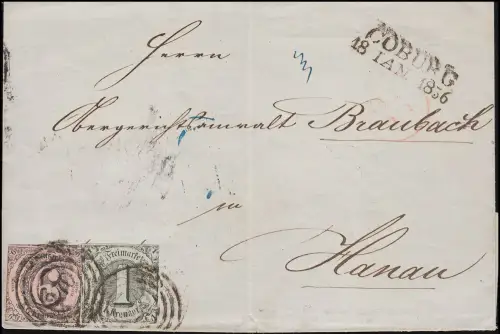 COBURG
18 IAN. 1856
Herrn
Obergerichtsanwalt Braubach
in
Hanau
Freimarke
1
Kreuzer